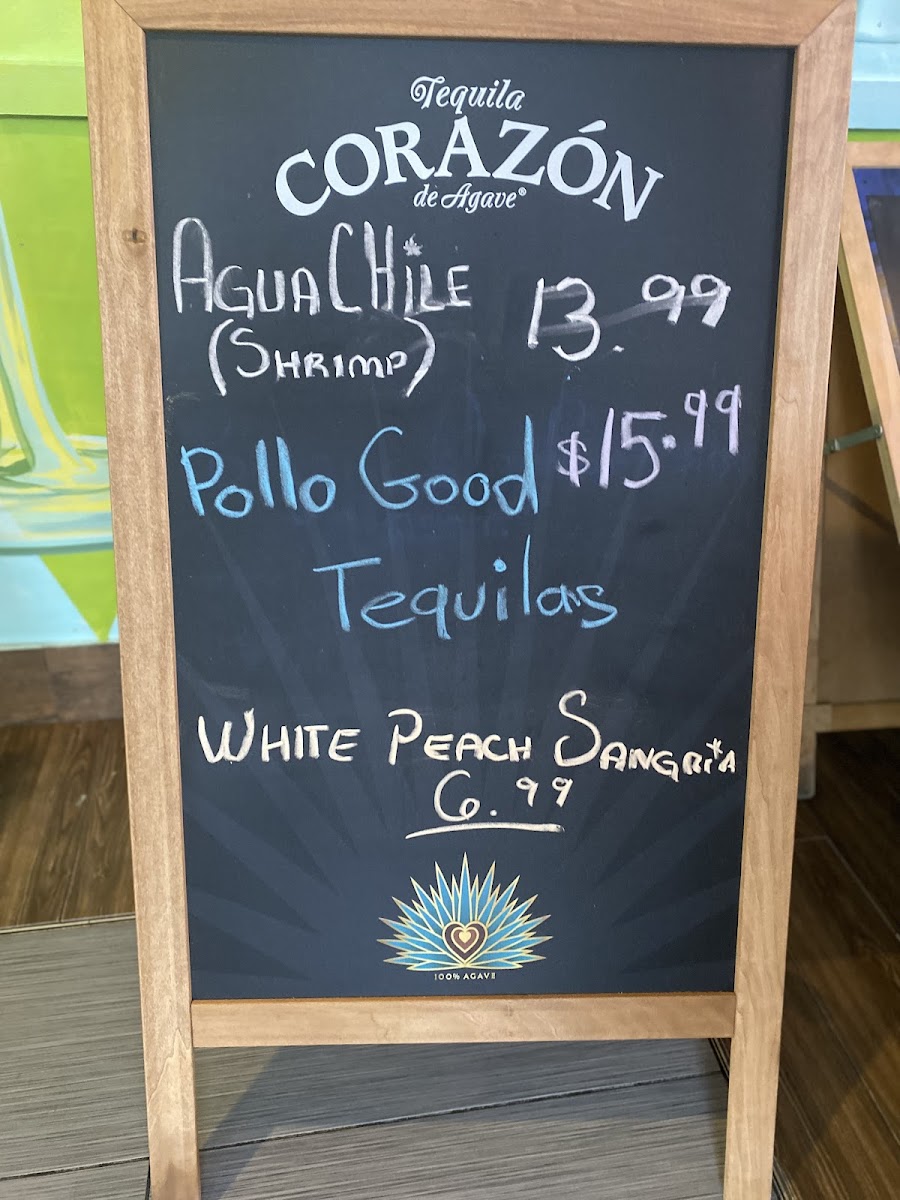 Tequila
CORAZÓN
de Agave®
AGUACHiLE 13.99
(SHRIMP)
Pollo Good $15.99
Tequilas
WHITE PEACH SANGRiA
6.99
100% AGAVE